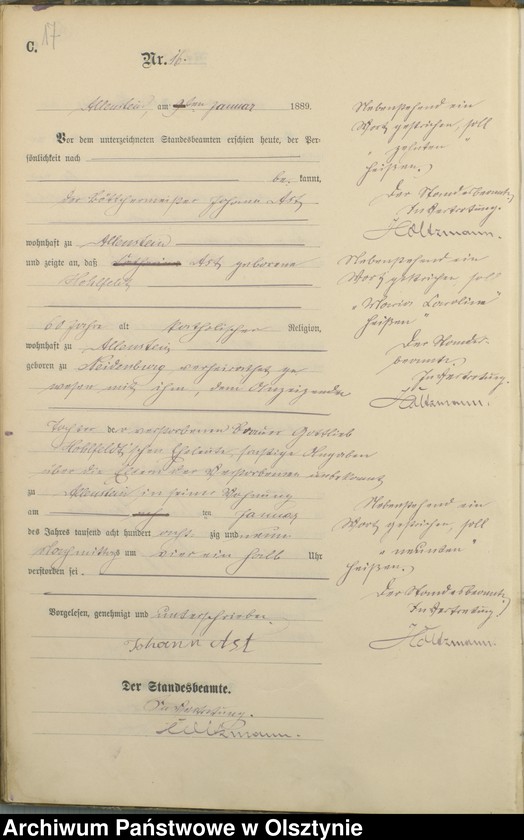 C. 17
Nr. 16.
Allenstein, am ten Januar 1889.
Vor dem unterzeichneten Standesbeamten erschien heute, der Per-
sönlichkeit nach
be kannt,
der Böttchermeister Johann Ast
wohnhaft zu Allenstein
und zeigte an, daß Ast geborene
60 Jahre alt katholischer Religion,
wohnhaft zu Allenstein
geboren zu Neidenburg, verheirathet ge
wesen mit ihm, dem Anzeigenden
Tochter der verstorbenen Brauer Gottlieb
Hohlfeldtschen Eheleute, sonstige Angaben
über die Eltern der Verstorbenen unbekannt
zu Allenstein in seiner Wohnung
am ten Januar
des Jahres tausend acht hundert acht zig und neun
Nachmittags um vier ein halb Uhr
verstorben sei.
Vorgelesen, genehmigt und unterschrieben
Johann Ast
Der Standesbeamte.
In Vertretung.
Holtzmann.
Nebenstehend ein
Wort gestrichen, soll
„zehnten"
heißen.
Der Standesbeamte.
In Vertretung.
Holtzmann.
Nebenstehend ein
Wort gestrichen, soll
„Maria Caroline"
heißen
Der Standes-
beamte.
In Vertretung.
Holtzmann.
Nebenstehend ein
Wort gestrichen, soll
„neunten"
heißen.
Der Standesbeamte
In Vertretung
Holtzmann.
Archiwum Państwowe w Olsztynie